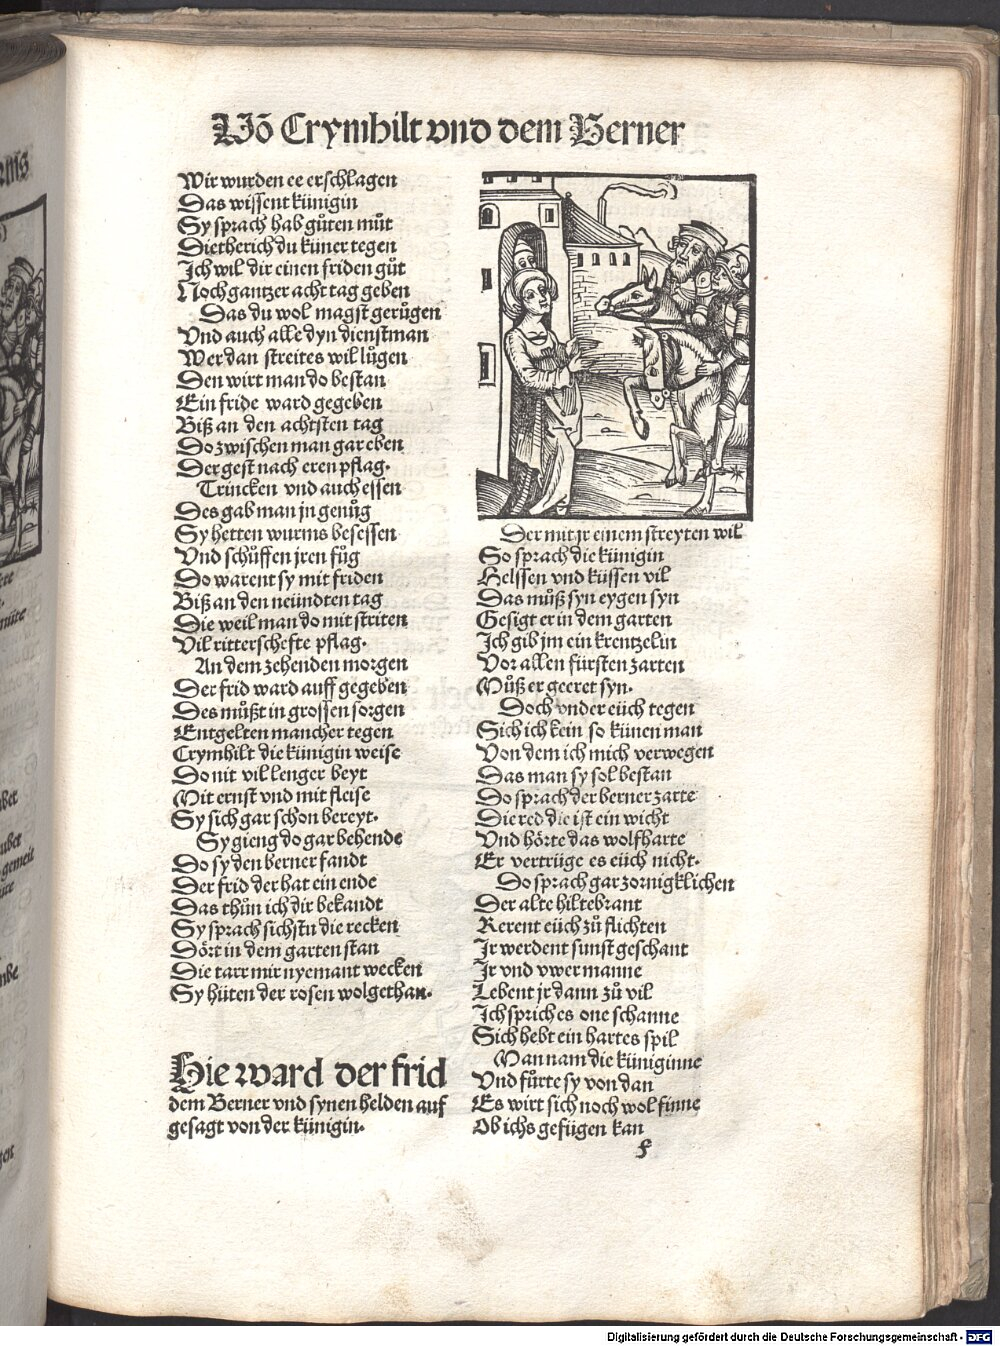 Võ Crymhilt vnd dem Berner
Wir wurden ee erschlagen
Das wissent künigin
Sy sprach hab gůten můt
Dietherich du küner tegen
Ich wil dir einen friden gůt
Noch gantzer acht tag geben
Das du wol magst gerůgen
Vnd auch alle dyn dienstman
Wer dan streites wil lůgen
Den wirt man do bestan
Ein fride ward gegeben
Biß an den achtsten tag
Do zwischen man gar eben
Der gest nach eren pflag.
Trincken vnd auch essen
Des gab man jn genůg
Sy hetten wurms besessen
Vnd schůffen jren fůg
Do warent sy mit friden
Biß an den neündten tag
Die weil man do mit striten
Vil ritterschefte pflag.
An dem zehenden morgen
Der frid ward auff gegeben
Des můßt in grossen sorgen
Entgelten mancher tegen
Crymhilt die künigin weise
Do nit vil lenger beyt
Mit ernst vnd mit fleise
Sy sich gar schon bereyt.
Sy gieng do gar behende
Do sy den berner fandt
Der frid der hat ein ende
Das thůn ich dir bekandt
Sy sprach sichstu die recken
Dört in dem garten stan
Die tarr mir nyemant wecken
Sy hüten der rosen wolgethan.
Hie ward der frid
dem Berner vnd synen helden auf
gesagt von der künigin.
Der mit jr einem streyten wil
So sprach die künigin
Helssen vnd küssen vil
Das můß syn eygen syn
Gesigt er in dem garten
Ich gib jm ein krentzelin
Vor allen fürsten zarten
Můß er geeret syn.
Doch vnder eüch tegen
Sich ich kein so künen man
Von dem ich mich verwegen
Das man sy sol bestan
Do sprach der berner zarte
Die red die ist ein wicht
Vnd hörte das wolfharte
Er vertrüge es eüch nicht.
Do sprach gar zornigklichen
Der alte hiltebrant
Kerent eüch zů flichten
Ir werdent sunst geschant
Ir vnd vwer manne
Lebent jr dann zů vil
Ich sprich es one schanne
Sich hebt ein hartes spil
Man nam die küniginne
Vnd fůrte sy von dan
Es wirt sich noch wol finne
Ob ichs gefügen kan
f
Digitalisierung gefördert durch die Deutsche Forschungsgemeinschaft - DFG